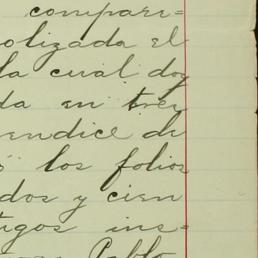 compare=
olizada el
la cual doy
da en tres
endice de
los folios
dos y cien
tigos ins=
Pablo